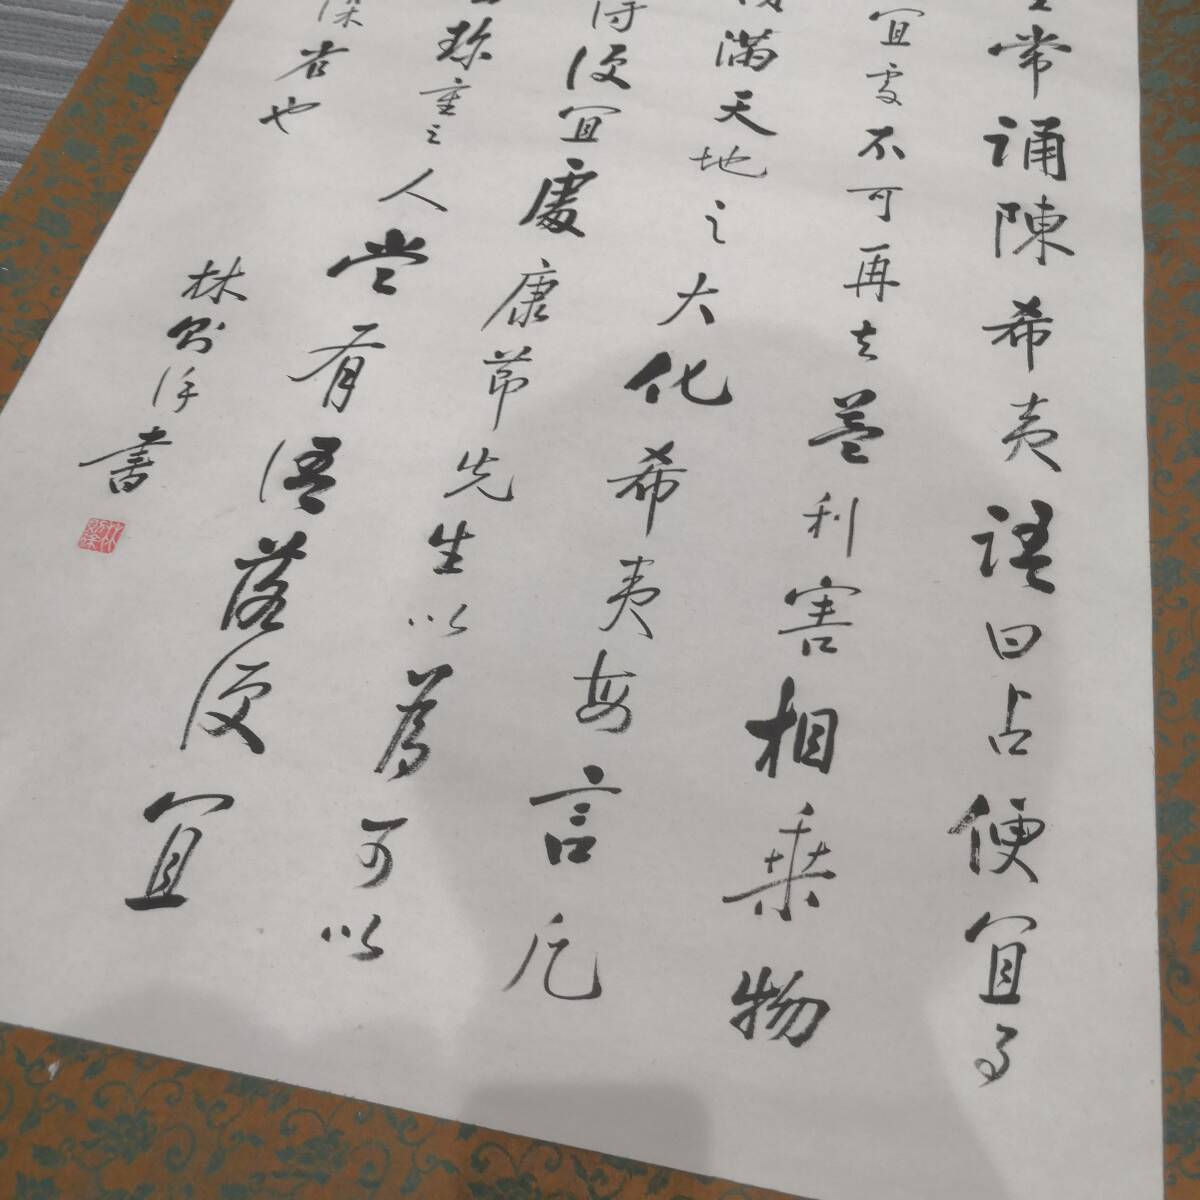 常誦陳希夷語曰占便宜
宜處不可再去蓋利害相乘物
滿天地之大化希夷每言凡
得便宜處康節先生以為可以
珍重至人嘗有語落便宜
深省也
林則徐書
林則徐